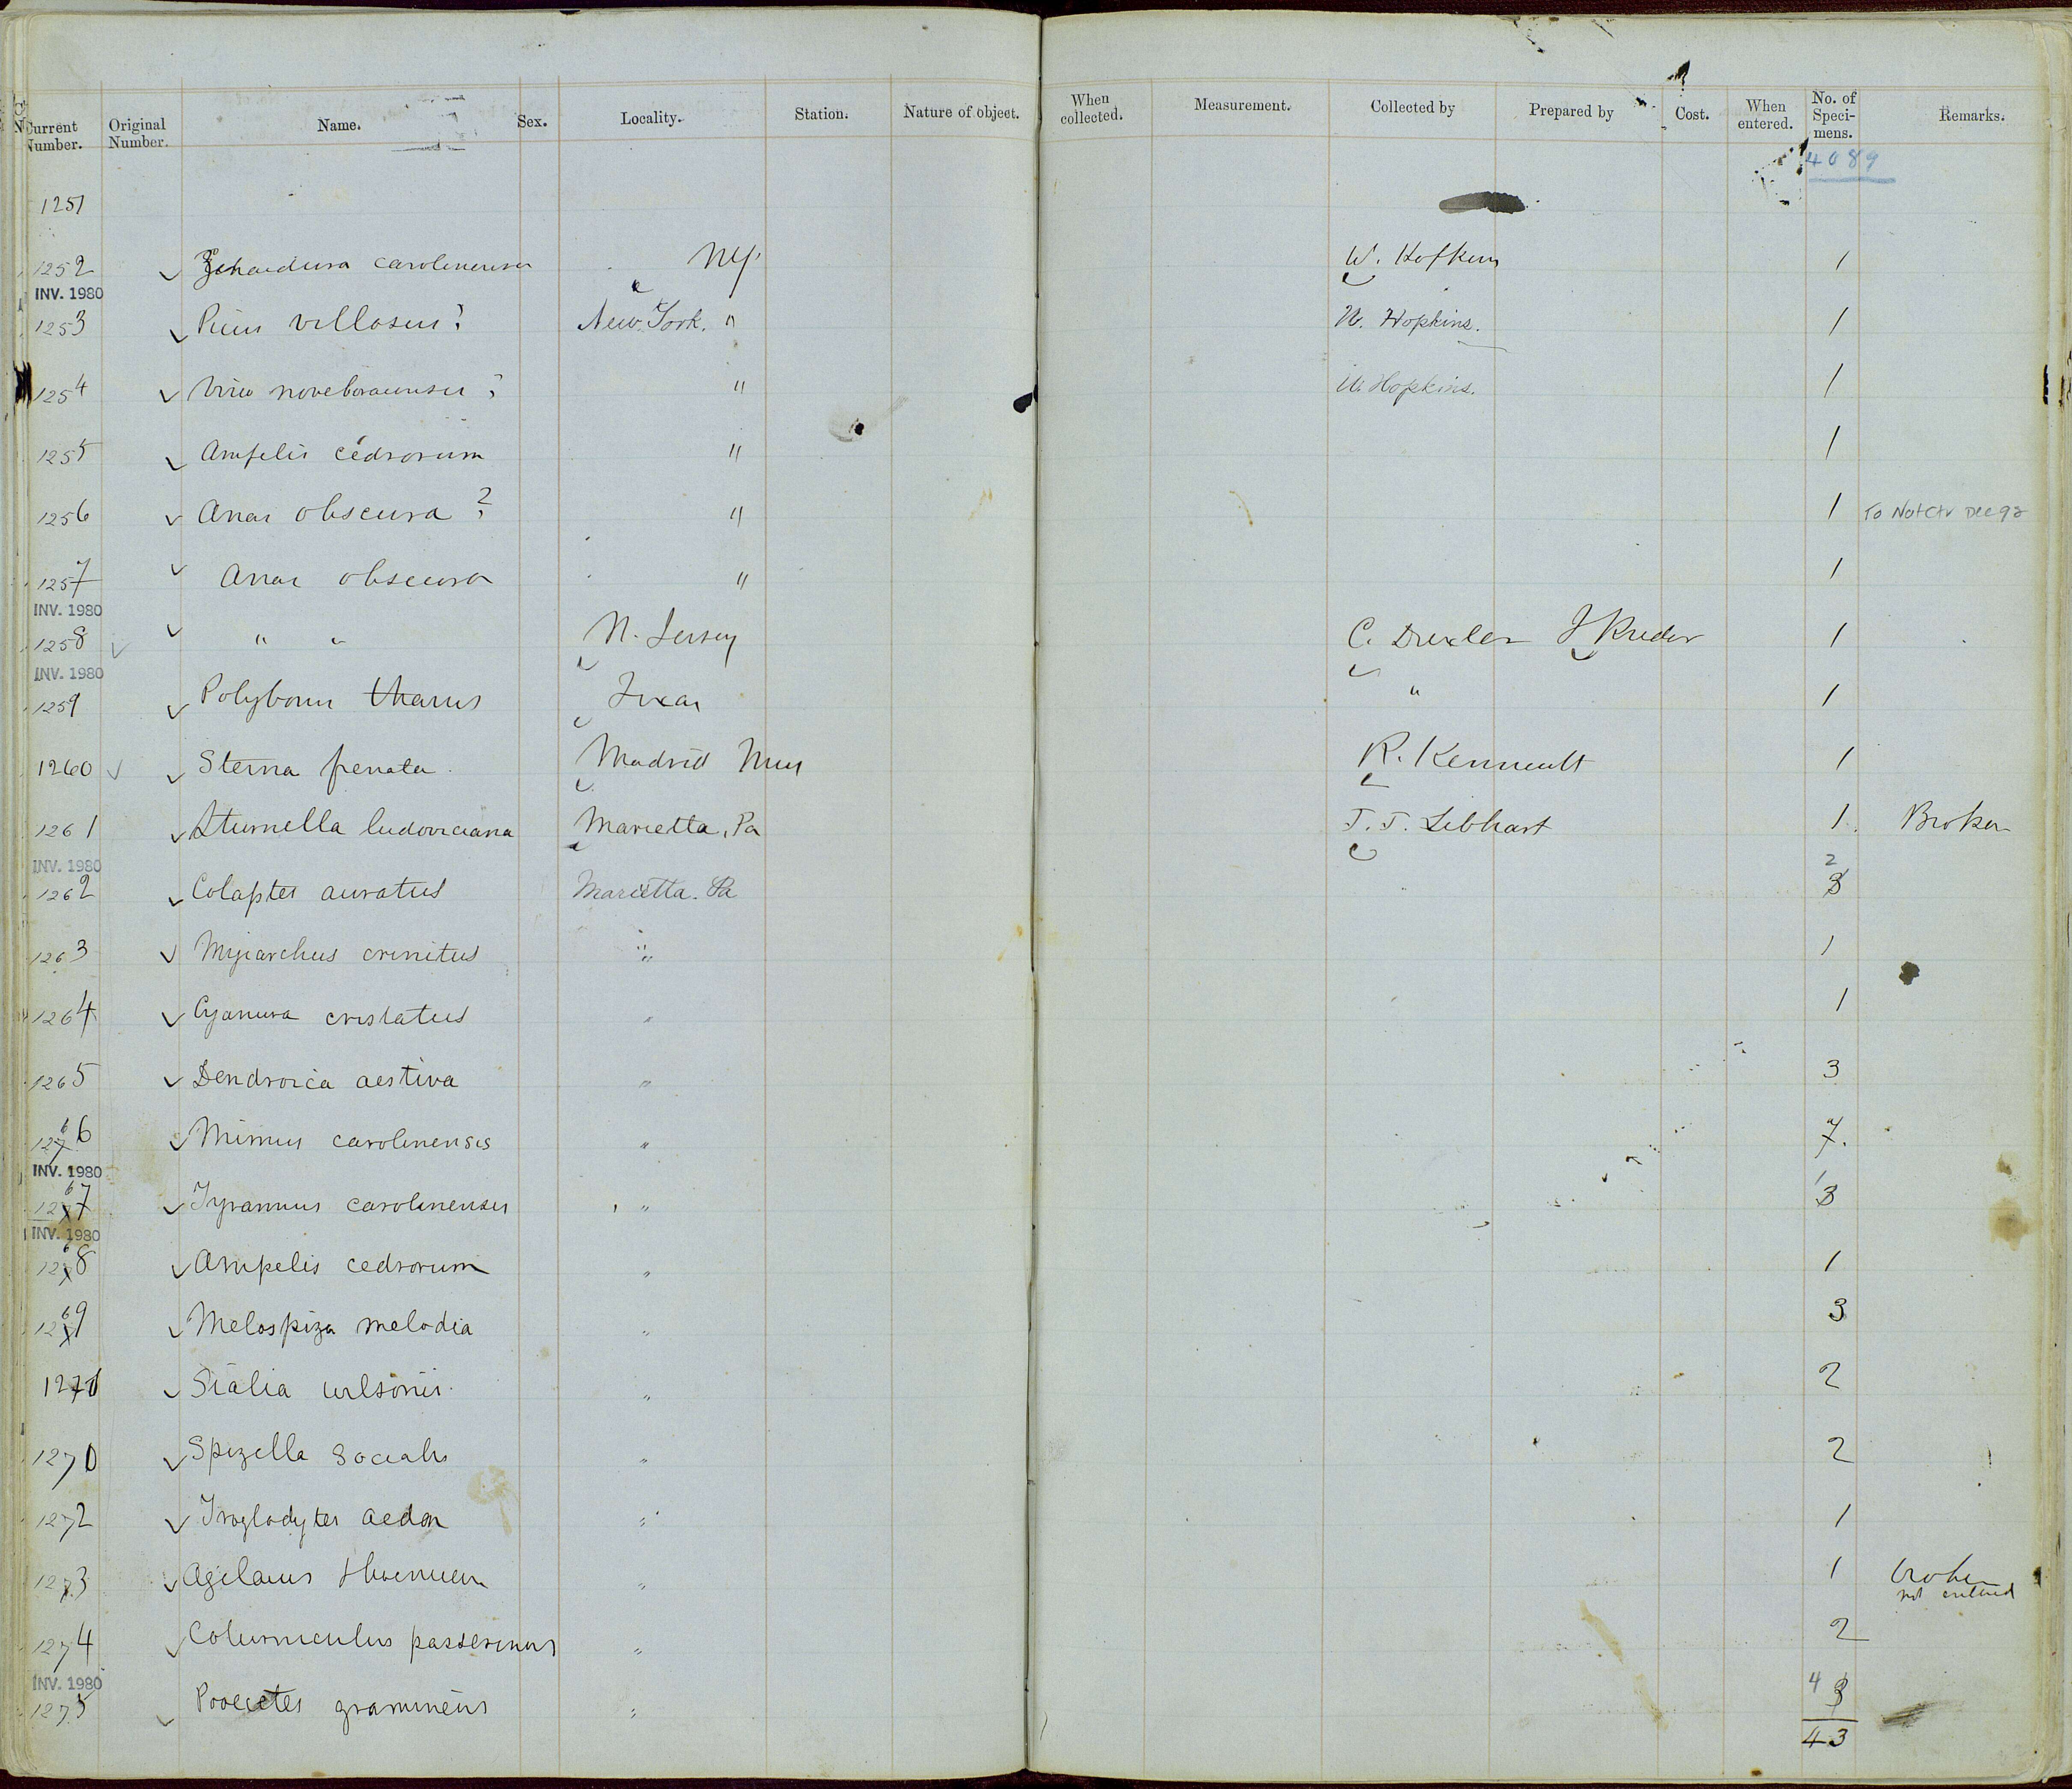 Current Number. Original Number. Name. Sex. Locality. Station. Nature of object. When collected. Measurement. Collected by Prepared by Cost. When entered. No. of Speci-mens. Remarks.
4089
1251
1252 carolinensis NY. W. 1
INV. 1980
1253 Picus villosus? New York. " W. Hopkins. 1
1254 Vireo noveboracensis? " W. Hopkins. 1
1255 Ampelis cedrorum " 1
1256 Anas obscura? " 1 To NotCtr Dec 92
1257 Anas obscura " 1
INV. 1980
1258 " " N. Jersey C. Drexler J Krider 1
INV. 1980
1259 Polyborus tharus Texas " 1
1260 Sterna Madrid R. 1
1261 Sturnella ludoviciana Marietta, Pa J. J. Libhart 1. Broken
INV. 1980
1262 Colaptes auratus Marietta. Pa 2 3
1263 Myiarchus crinitus " 1
1264 Cyanura cristatus " 1
1265 Dendroica aestiva " 3
12766 Mimus carolinensis " 7.
INV. 1980
12677 Tyrannus carolinensis " 1 3
INV. 1980
12678 Ampelis cedrorum " 1
12679 Melospiza melodia " 3
1270 Sialia wilsonii. " 2
1270 Spizella socialis " 2
1272 Troglodytes aedon " 1
1273 Agelaius " 1 broken
not entered
1274 Coturniculus passerinus " 2
INV. 1980
1275 Pooecetes gramineus " 4 3
43